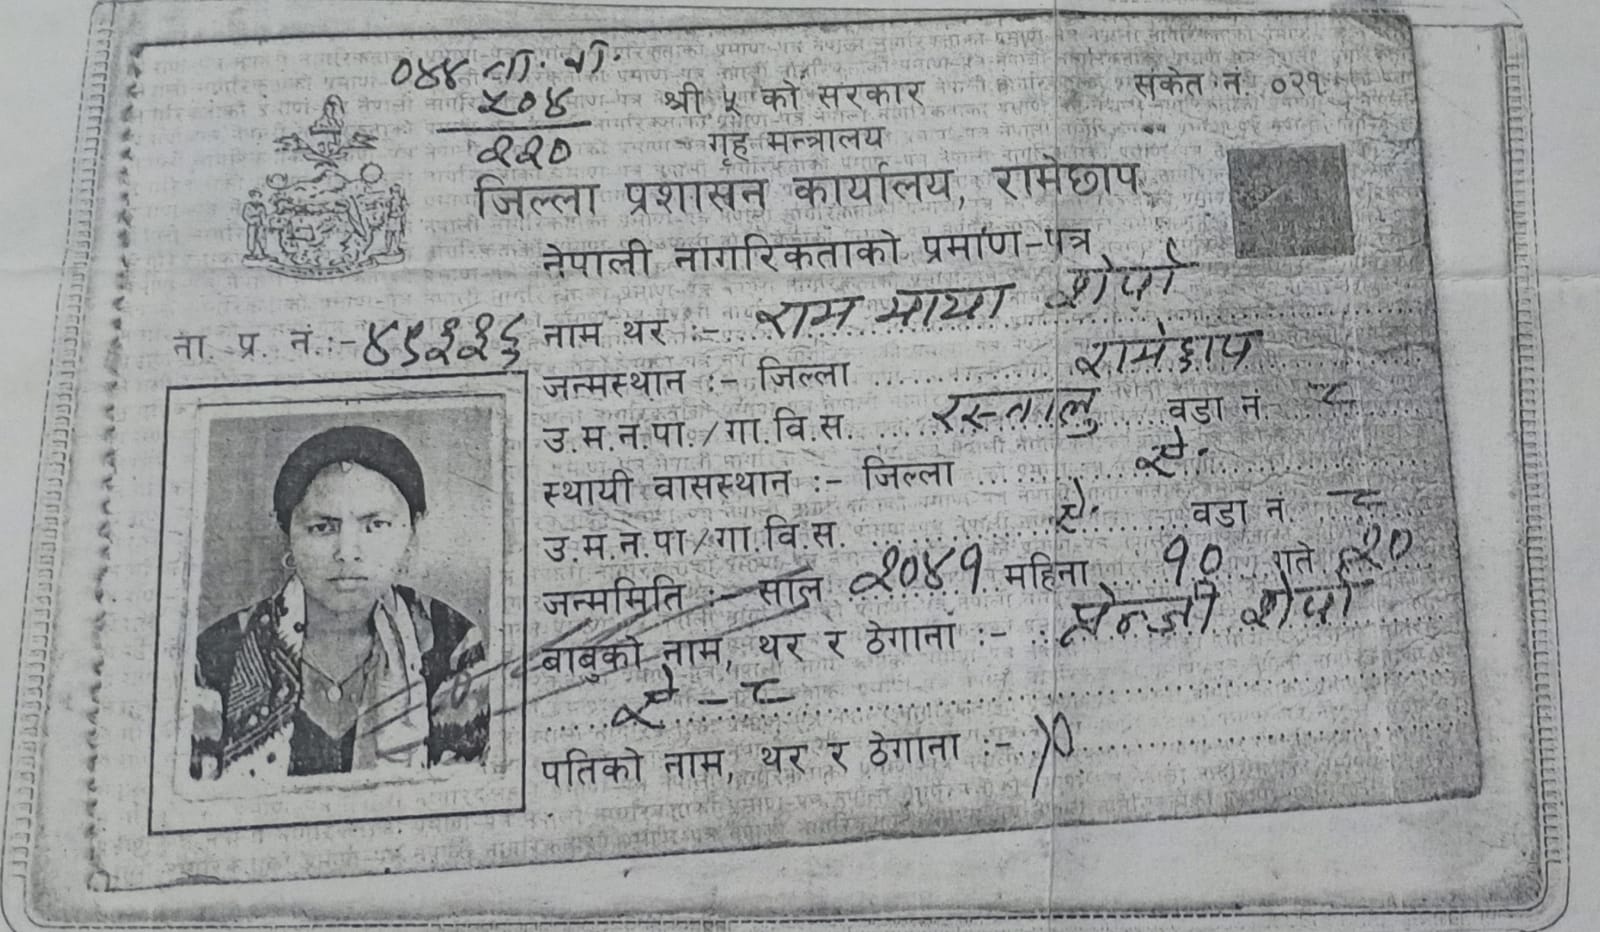 ०४४ ना. प्र.
२०४
२२०
श्री ५ को सरकार
संकेत नं. ०२१
गृह मन्त्रालय
जिल्ला प्रशासन कार्यालय, रामेछाप
नेपाली नागरिकताको प्रमाण-पत्र
ना. प्र. नं.:-
नाम थर :- राम माया शेर्पा
जन्मस्थान :- जिल्ला रामेछाप
उ.म.न.पा./गा.वि.स. रस्नालु वडा नं. ८
स्थायी वासस्थान :- जिल्ला ऐ.
उ.म.न.पा/गा.वि.स. ऐ. वडा नं. ८
जन्ममिति :- साल २०४१ महिना १० गते २०
बाबुको नाम, थर र ठेगाना :- शेर्पा
ऐ - ८
पतिको नाम, थर र ठेगाना :-